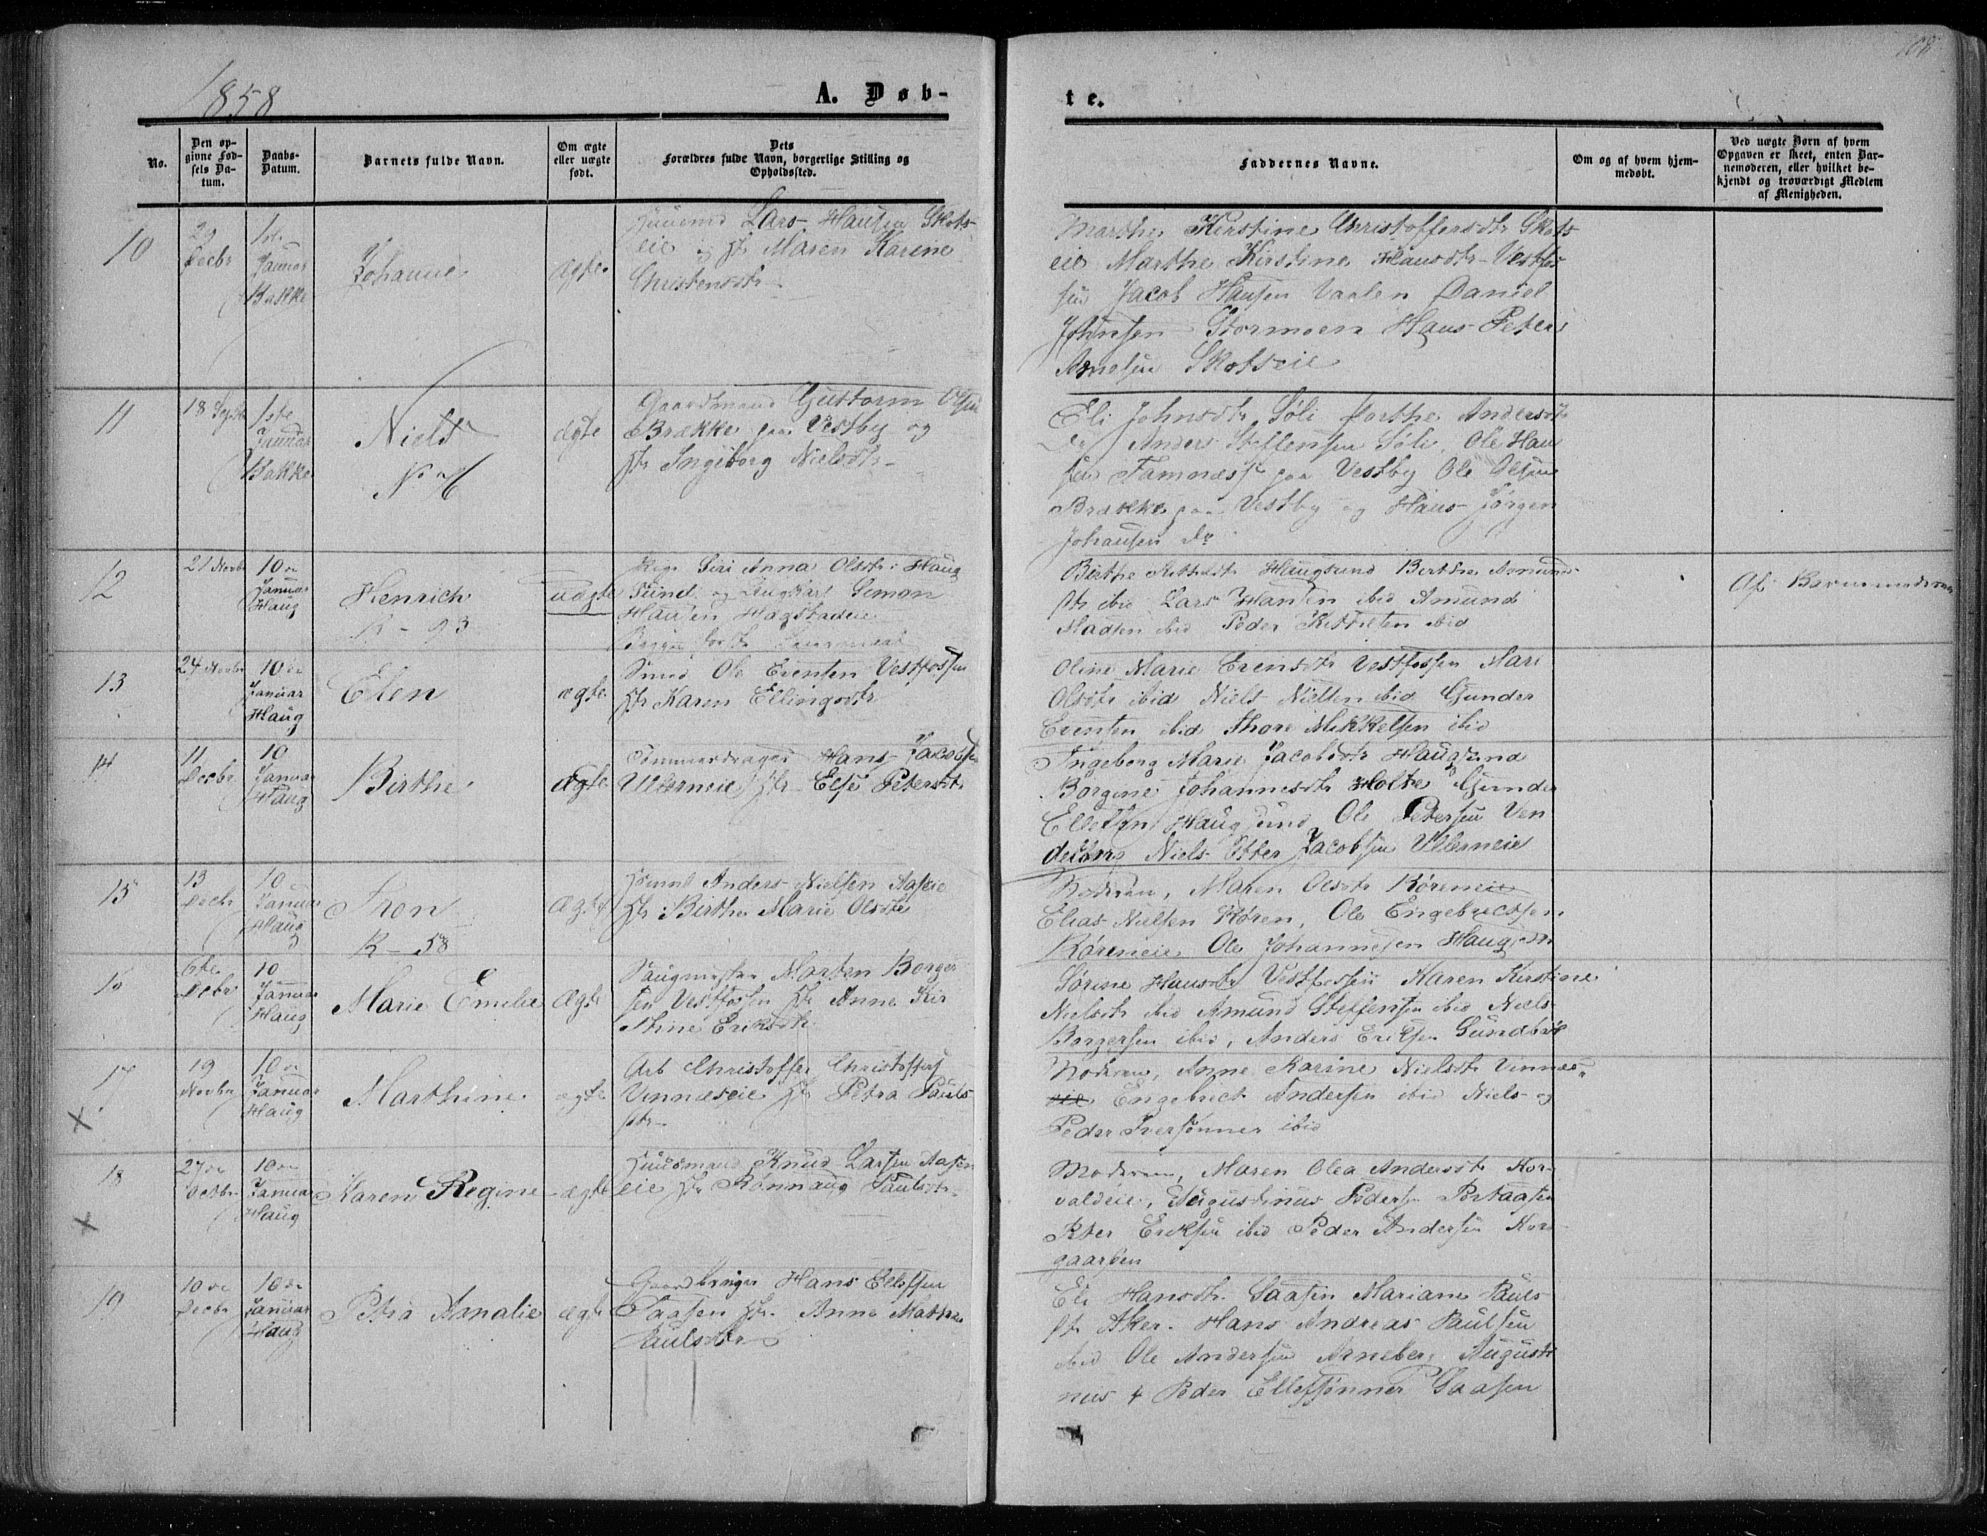 108
1858
A. Døb-
te.
No.
Den op-
givne Fød-
sels Da-
tum.
Daabs-
Datum.
Barnets fulde Navn.
Om ægte
eller uægte
født.
Dets
Forældres fulde Navn, borgerlige Stilling og
Opholdssted.
Faddernes Navne.
Om og af hvem hjem-
medøbt.
Ved uægte Børn af hvem
Opgaven er skeet, enten Bar-
nemoderen, eller hvilket be-
kjendt og troværdigt Medlem
af Menigheden.
10
29
Decbr
1ste
Januar
Bakke
Johanne
ægte
Lars Hansen Skots
eie og Maren Karine
Christensdtr
Marthe Kirstine Christoffersdtr Skots
eie Marthe Kirstine Hansdtr Vestfos
sen Jacob Hansen Daniel
Johnsen Stormoen Hans Peter
Arnesen Skotseie
11
18 Septbr
1ste
Januar
Bakke
Niels
ægte
Gaardmand Guttorm Olsen
Brække paa Vestby og
Ingeborg Nielsdtr
Eli Johnsdtr Søli Marthe Andersdtr
Do Anders Steffensen Søli Ole Han
sen Tamnæss paa Vestby Ole Olsen
Brække paa Vestby og Hans Jørgen
Johansen do
12
21 Novbr
10de
Januar
Haug
Henrich
R - 93
uægte
Pige Siri Anna Olsdtr Haug
sund og Ungkarl Simon
Hansen Hagstadeie
Birthe Haugsund Birthe Amunds
dtr ibid Lars Hansen ibid Amund
Madsen ibid Peder Kittelsen ibid
Af Barnemoderen
13
24 Novbr
10de
Januar
Haug
Elen
ægte
Smed Ole Evensen Vestfossen
Karen Ellingsdtr
Oline Marie Evensdtr Vestfossen Mari
Olsdtr ibid Niels Nielsen ibid Gunder
Evensen ibid Thore Mikkelsen ibid
14
11
Decbr
10
Januar
Haug
Birthe
Ægte
Tømmerdrager Hans Jacobsen
Ullerneie Else Petersdtr
Ingeborg Marie Jacobsdtr Haugsund
Borgine Johannesdtr Holte Gunder
Ellefsen Haugsund Ole Petersen Ven
Niels Otter Jacobsen Ullerneie
15
13
Decbr
10
Januar
Haug
Iven
R - 58
ægte
Anders Nielsen Aaseie
Birthe Marie Olsdtr
Moderen, Maren Olsdtr Køreneie
Elias Nielsen Køren, Ole Engebretsen
Køreneie Ole Johannesen Haugsund
16
6te
Decbr
10
Januar
Haug
Marie Emelie
Ægte
Saugmester Morten Borger
sen Vestfossen Anne Kir
stine Eriksdtr
Sørine Hansdtr Vestfossen Karen Kirstine
Nielsdtr ibid Amund Steffensen ibid Niels
Borgersen ibid, Anders Eriksen Sundbye
17
19
Novbr
10de
Januar
Haug
Marthine
ægte
Arb Christoffer Christoffers
Vinnæseie Petra Pauls
dtr
Moderen, Anne Karine Nielsdtr Vinnes
eie Engebret Andersen ibid Niels og
Peder Iversønner ibid
X
18
27de
Octbr
10de
Januar
Haug
Karen Regine
ægte
Huusmand Knud Larsen Aasen
eie Rønnaug Paulsdtr
Moderen, Maren Olea Andersdtr Kor
valdeie, Augustinus Pedersen Portaasen
Peter Eriksen ibid Peder Andersen Kor
gaarden
X
19
10de
Decbr
10de
Januar
Haug
Petra Amalie
ægte
Gaardbruger Hans Ellefsen
Saasen Anne Mathea
Paulsdtr
Eli Hansdtr Saasen Mariane Pauls
dtr Aker. Hans Andreas Paulsen
ibid Ole Andersen Arneberg Augusti
nus & Peder Ellefsønner Saasen